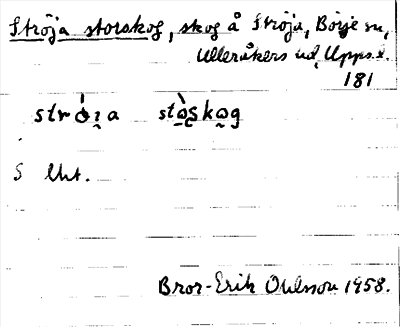 Ströja storskog, skog å Ströja, Börje sn,
Ulleråkers hd, Upps.l.
181
strò̱ı̯a stò̱s̱ko̱g
S Utt.
Bror-Erik Ohlsson 1958.